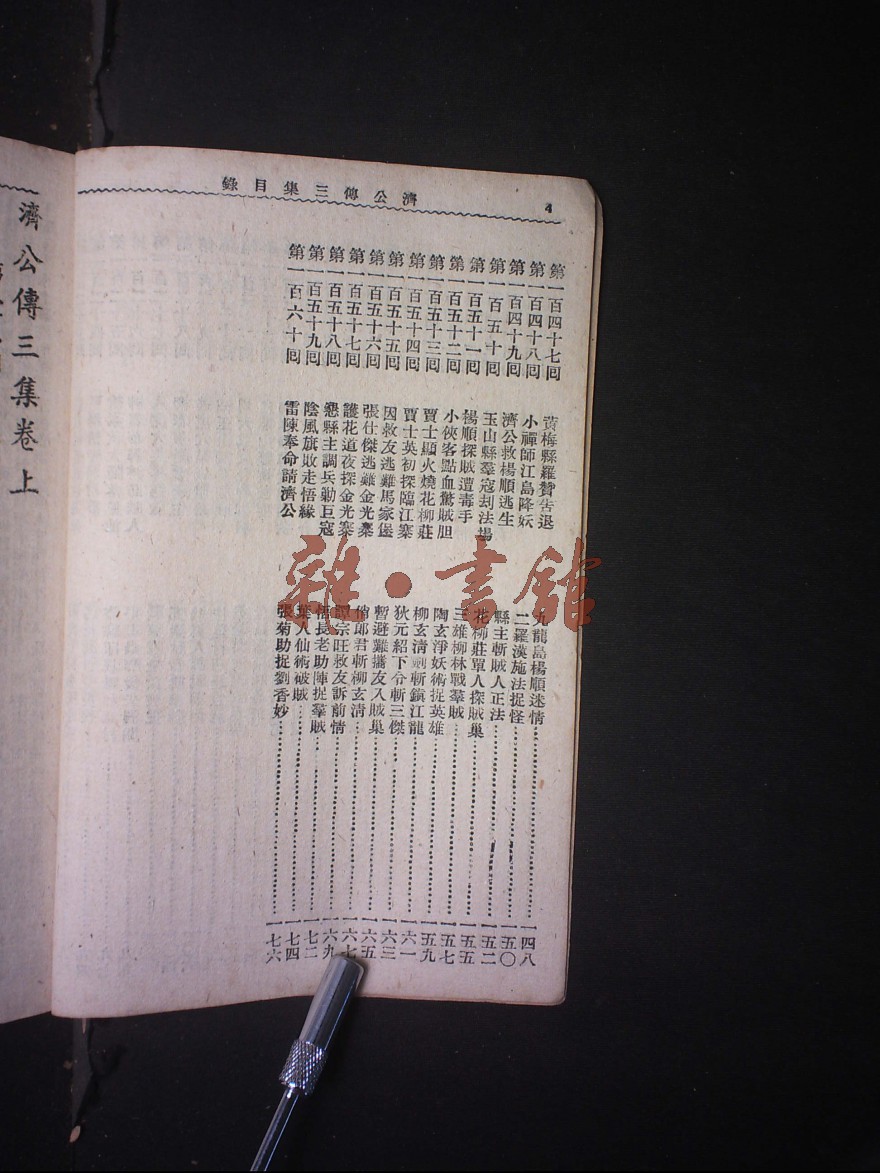 濟公傳三集目錄
4
第一百四十七回 黃梅縣羅贊告退 九龍島楊順迷情 一四八
第一百四十八回 小禪師江島降妖 二羅漢施法捉怪 一五〇
第一百四十九回 濟公救楊順逃生 縣主斬賊人正法 一五二
第一百五十回 玉山縣羣寇刦法場 花柳莊單人探賊巢 一五五
第一百五十一回 楊順探賊遭毒手 三雄柳林戰羣賊 一五七
第一百五十二回 小俠客點血驚賊胆 陶玄淨妖術捉英雄 一五九
第一百五十三回 賈士顯火燒花柳莊 柳玄清劍斬鎮江龍 一六一
第一百五十四回 賈士英初探臨江寨 狄元紹下令斬三傑 一六三
第一百五十五回 因救友逃難馬家堡 暫避難攜友入賊巢 一六五
第一百五十六回 張仕傑逃難金光寨 俏郎君斬柳玄清 一六七
第一百五十七回 護花道夜探金光寨 譚宗旺救友訴前情 一六九
第一百五十八回 懇縣主調兵勦巨寇 悟長老助陣捉羣賊 一七二
第一百五十九回 陰風旗敗走悟緣 葉人仙術破賊 一七四
第一百六十回 雷陳奉命請濟公 張菊助捉劉香妙 一七六
濟公傳三集卷上
雜·書館